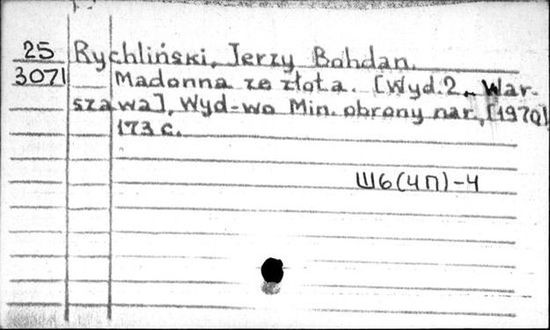 25 Rychliński, Jerzy Bohdan.
3071 Madonna ze złota. [Wyd. 2. War-
szawa], Wyd-wo Min. obrony nar, [1970]
173 c.
Ш6(4П)-4